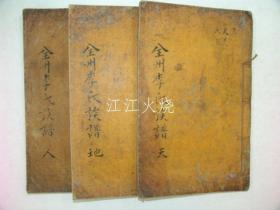 全州李氏族譜 天
全州李氏族譜 地
全州李氏族譜 人
江江火烧